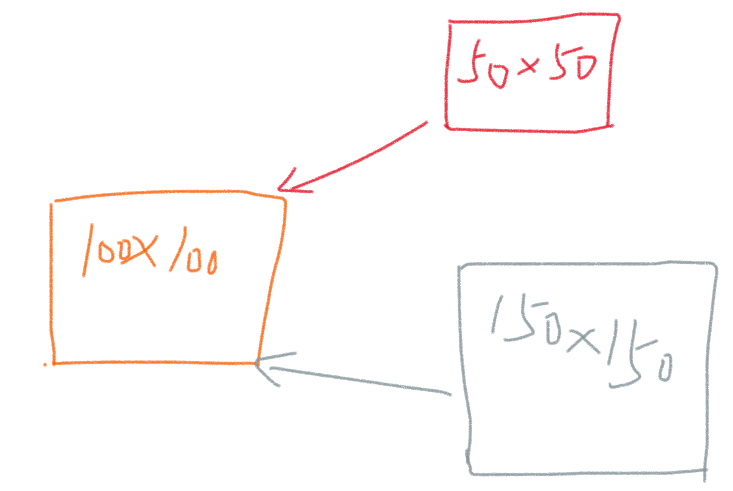 50×50
100×100
150×150